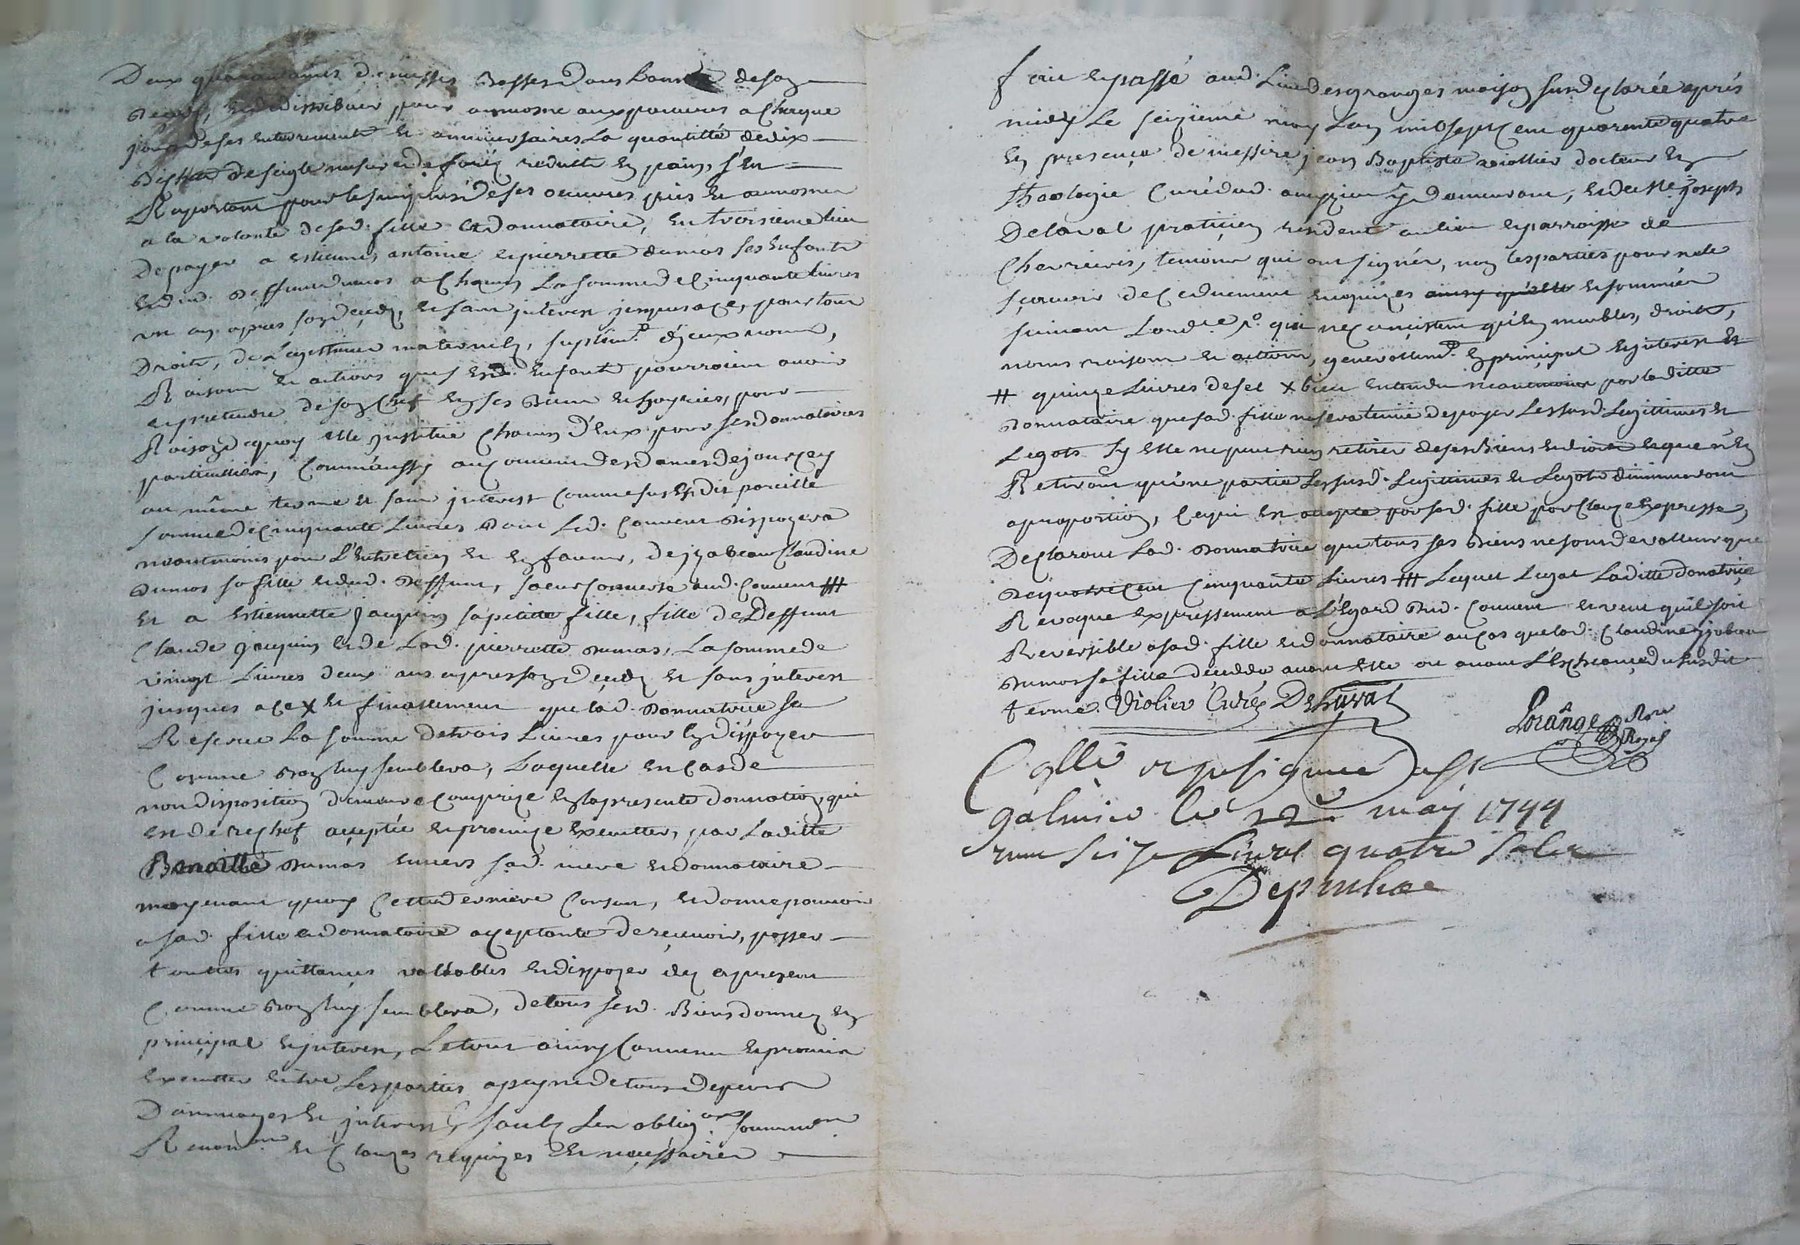 Deux quarantaines de messes Basses dans L'année de son
Decès, et de distribuer pour aumosne aux pauvres a Chaque
jour de ses enterrement et anniversaires La quantitté de dix
Bichets de seigle mesure de foüis reduitte en pain, s'En
Raportant pour le surplus de ses oeuvres pies et aumosnes
a la volonté de sad. fille et donnataire, En troisieme lieu
De payer a Estienne, antoine et pierrette dumas ses Enfants
et dud. Deffunt dumas a Chacun La somme de Cinquante livres
un an apres son decez, et sans interest jusques a ce, pour tous
Droits, de Legittime maternels, suplém.t d'jceux noms,
Raisons et actions que sesd. Enfants pourroient avoir
et pretendre de son Chef en ses Biens et hoyries, pour
Raison de quoy elle institue Chacun d'Eux pour ses donnataires
particulliers, Comm'aussy au Couvent des dames de jourcey
au même terme et sans interest comme sus est dit pareille
somme de Cinquante Livres Dont Led. Couvent disposera
neantmoins pour L'Entretien et en faveur, de jzabeau Claudine
Dumas sa fille et dud. Deffunt, soeur Converse aud. Couvent #
Et a Estiennette jacquin sa petitte fille, fille de Deffunt
Claude jacquin et de Lad. pierrette Dumas, La somme de
vingt Livres deux ans apres son decez et sans interest
jusques a ce X et finallement que lad. Donnatrice se
Reserve La somme de trois Livres pour en disposer
Comme Bon luy semblera, Laquelle en Cas de
non disposition demeure Comprise en la presente donnation, qui
en de rechef acceptée et promise Executter, par Laditte
Benoitte Dumas envers sad. mere et donnataire
moyenant quoy Cette derniere Consent, et donne pouvoir
a sad. fille et donnataire acceptante de recevoir, passer
touttes quittances vallables et disposer des apresent
Comme Bon luy semblera, de tous sesd. Biens donnez en
principal et interest, Le tout ainsy Convenu et promis
Executter Entre Lesparties a peyne de tous depens
Dommages et interest, sauf Leu oblig.ons soumm.ons
Renon.ons et Clauses requizes et necessaires
fait et passé aud. Lieu des granges maison susd eclarée après
midy Le seizieme may L'an mil Sept Cent quarente quatre
En presence de messire jean Baptiste violier docteur En
thaologie Curé dud. y demeurant, et de Me. joseph
Delaval praticien residant au lieu et parroisse de
Chevrieres, temoins qui ont signés, non Lesparties pour ne le
sçavoir de Ce düement enquizes ainsy qu'elle et sommées
suivant L'ord.ce qui ne Consistent qu'En meubles, droits,
noms raisons et actions, generallem.t En principal et interest et
# quinze Livres de sel X bien entendu neanmoins par laditte
Donnataire que sad. fille ne sera tenüe de payer Lessusd. Legittimes et
Legats sy elle ne peut rien retirer de ses Biens et droits et que s'En
Retirant qu'une partie Lessusd. Legittimes et Legats diminueront
a proportion, Ce qui est accepté par sad. fille par Clause Expresse,
Declarant Lad. Donnatrice que tous ses Biens ne sont de valleur que
de quatre Cent Cinquante Livres # Lequel Legat Laditte donatrice
Revoque Expressement a L'Egard dud. Couvent et veut qu'il soit
Reversible a sad. fille et donnataire au Cas que lad. Claudine jzabeau
Dumas sa fille decedde avant elle ou avant L'Escheance du susdit
terme. Violier Curé Delaval
Lorânge Nore
Royal
Collé et jnsinué a St
galmier le 22 may 1744
reçu seize Livres quatre sols